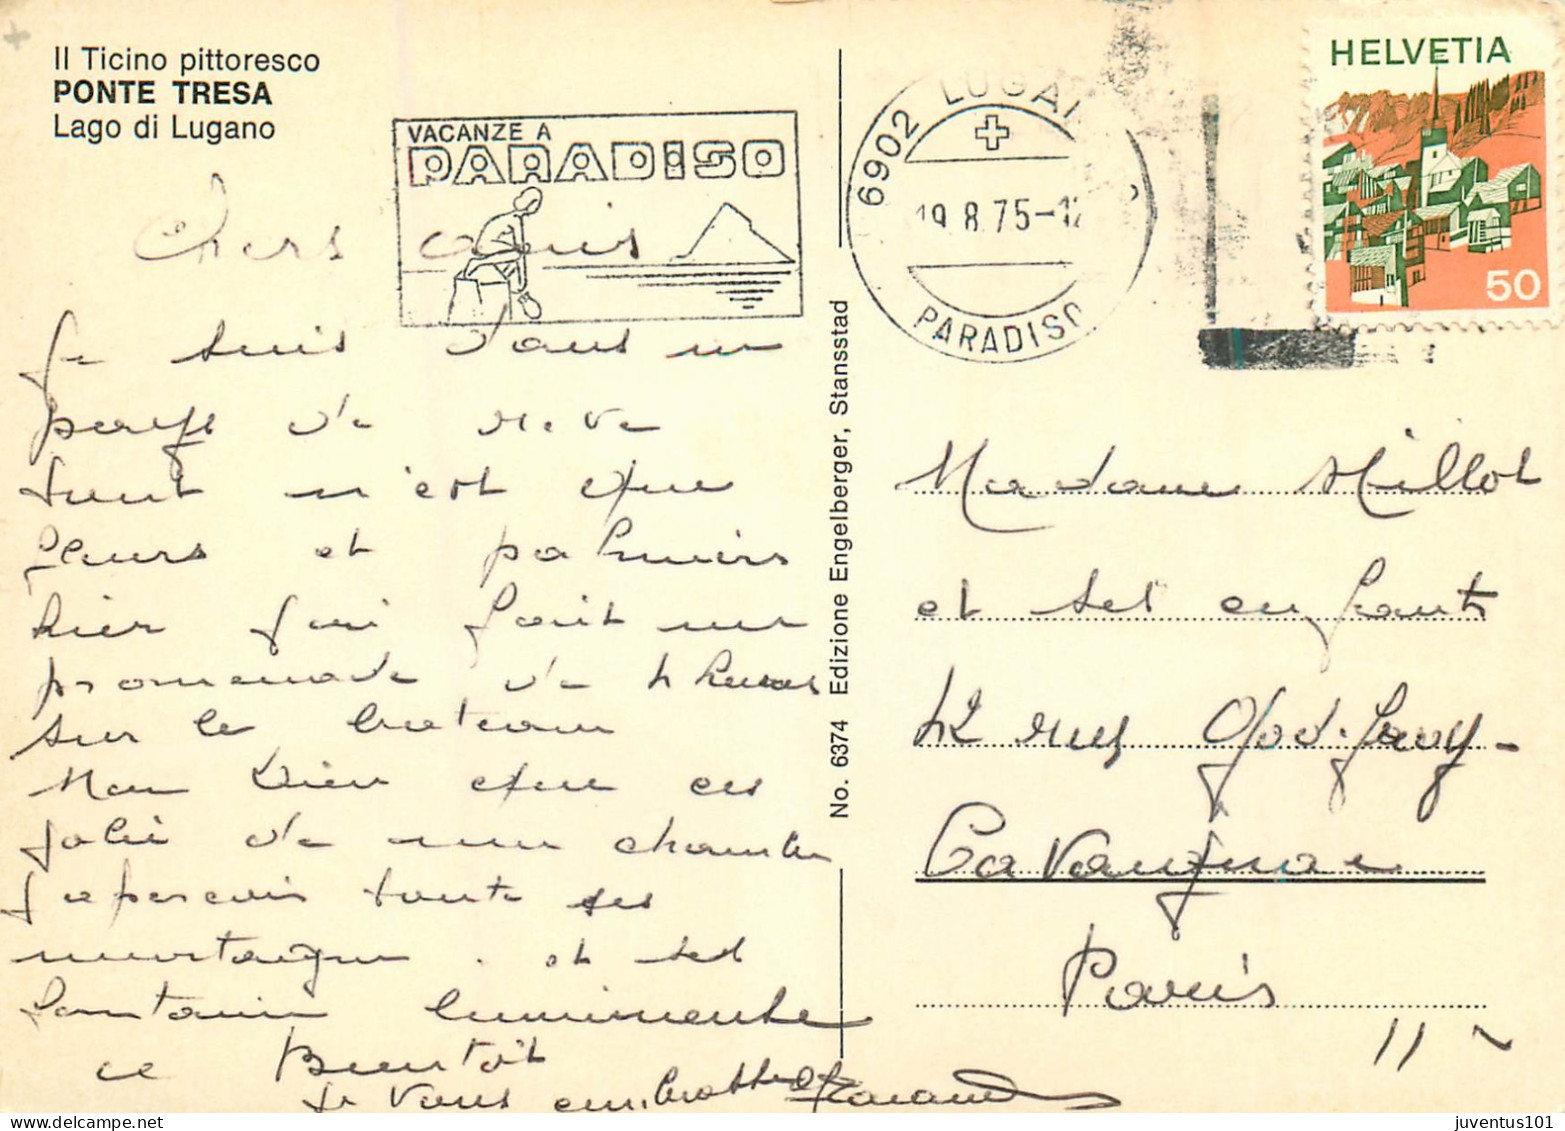 Il Ticino pittoresco
PONTE TRESA
Lago di Lugano
VACANZE A
PARADISO
6902 LUGA
19.8.75-12
PARADISO
HELVETIA
50
Chers amis
Je suis dans un
pays de reve
tout n'est que
fleurs et palmiers
hier j'ai fait une
promenade de 4 heures
sur le bateau
Mon Dieu que ces
jolie de ma chambre
J'apercois toute ses
montaigne . et ses
fontaine lumineuse
a Bientôt
Je vous embrasse
No. 6374 Edizione Engelberger, Stansstad
Madame Millot
et ses enfants
42 rue God. froy-
Cavaignac
Paris
11
juventus101